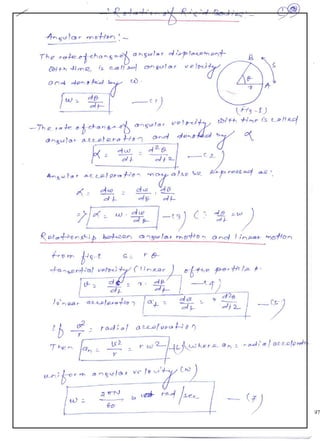 : Relation of Rigid Bodies :
Angular motion :-
The rate of change of angular displacement
with time is called angular velocity
and denoted by ω.
ω = dθ/dt —(1)
B
S
θ
r
A
(Fig-1)
- The rate of change of angular velocity with time is called
angular acceleration and denoted by α
α = dω/dt = d²θ/dt² —(2)
Angular acceleration may also be expressed as:
α = dω/dt = dω/dθ · dθ/dt
=> α = ω · dω/dθ —(3) (∵ dθ/dt = ω)
Relationship between angular motion and linear motion
from fig-1 S = rθ
tangential velocity (linear) of the particle
v = ds/dt = r · dθ/dt —(4)
linear acceleration a_t = dv/dt = r d²θ/dt² —(5)
If v²/r = radial acceleration
Then a_n = v²/r = rω² —(6) where a_n = radial acceleration
uniform angular velocity (ω)
ω = 2πN/60 rad/sec —(7)